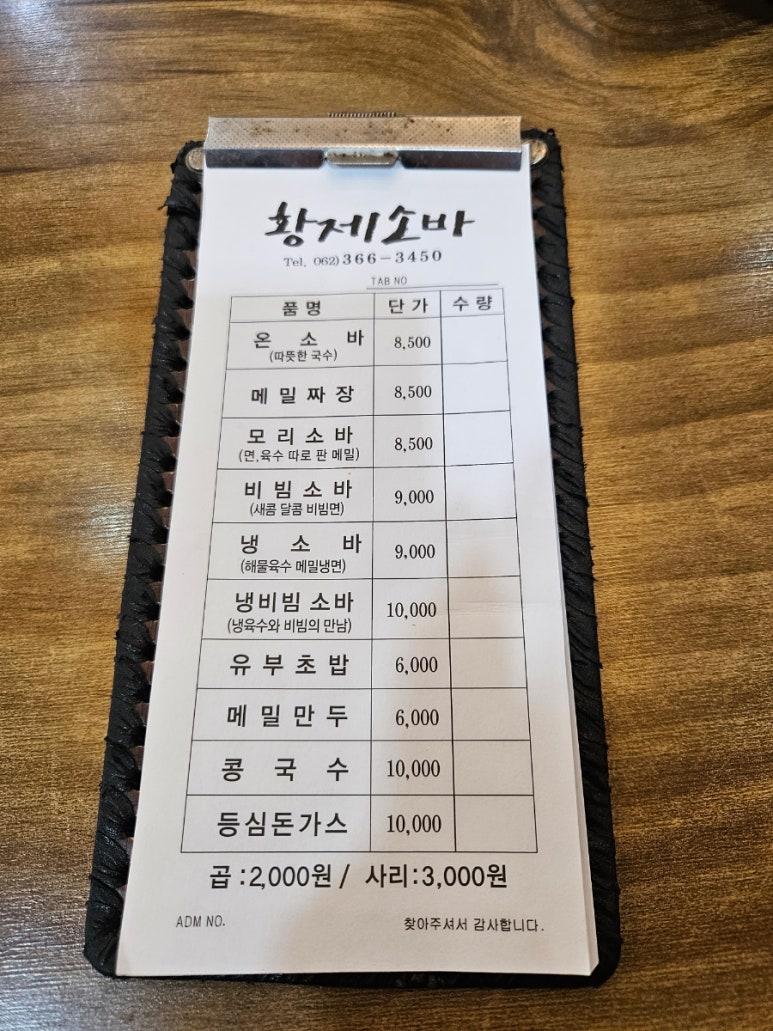 황제소바
Tel. 062)366-3450
TAB NO
품명 단가 수량
온소바 8,500
(따뜻한 국수)
메밀짜장 8,500
모리소바 8,500
(면,육수 따로 판 메밀)
비빔소바 9,000
(새콤 달콤 비빔면)
냉소바 9,000
(해물육수 메밀냉면)
냉비빔 소바 10,000
(냉육수와 비빔의 만남)
유부초밥 6,000
메밀만두 6,000
콩국수 10,000
등심돈가스 10,000
곱:2,000원 / 사리:3,000원
ADM NO. 찾아주셔서 감사합니다.